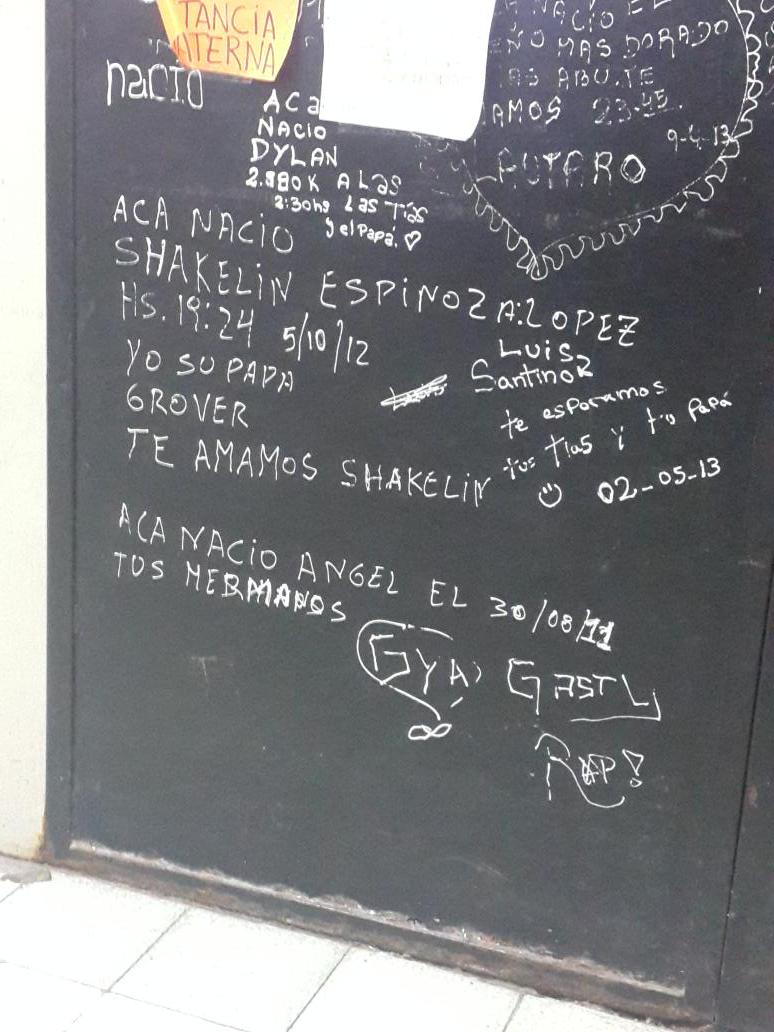 TANCIA
ATERNA
nacIO
ACa
NACIO
DYLAN
2.980K A LaS
2:30hs Las Tías
y el Papá. ♡
NACIO EL
MAS DORADO
ABU.TE
AMOS 23:45.
9-4-13
LAUTARO
ACA NACIO
SHAKELIN ESPINOZA:LOPEZ
HS. 19:24 5/10/12
YO SU PAPA
GROVER
TE AMAMOS SHAKELIN
Luis
Santino
te esporamos
tus tias y tu papá
☺ 02-05-13
ACA NACIO ANGEL EL 30/08/11
TUS HERMANOS
GYA
GASTL
∞
RAP!